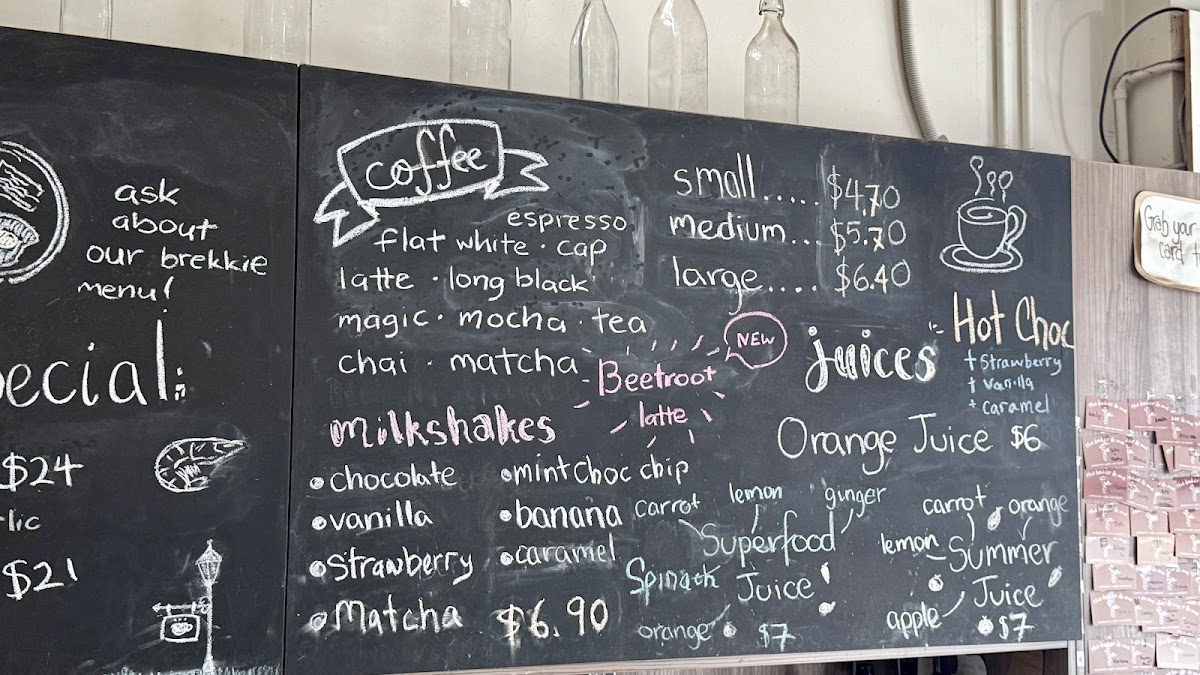 ask
about
our brekkie
menu!
ecial:
$24
lic
$21
coffee
espresso
flat white · cap
latte · long black
magic · mocha · tea
chai · matcha
small..... $4.70
medium... $5.70
large.... $6.40
NEW
Beetroot
latte
milkshakes
• chocolate
• vanilla
• Strawberry
• Matcha
• mint choc chip
• banana
• caramel
$6.90
juices
Orange Juice $6
carrot lemon ginger
Superfood
Spinach Juice
orange $7
carrot orange
lemon Summer
Juice
apple $7
Hot Choc
+ Strawberry
+ Vanilla
+ caramel
Grab your
card